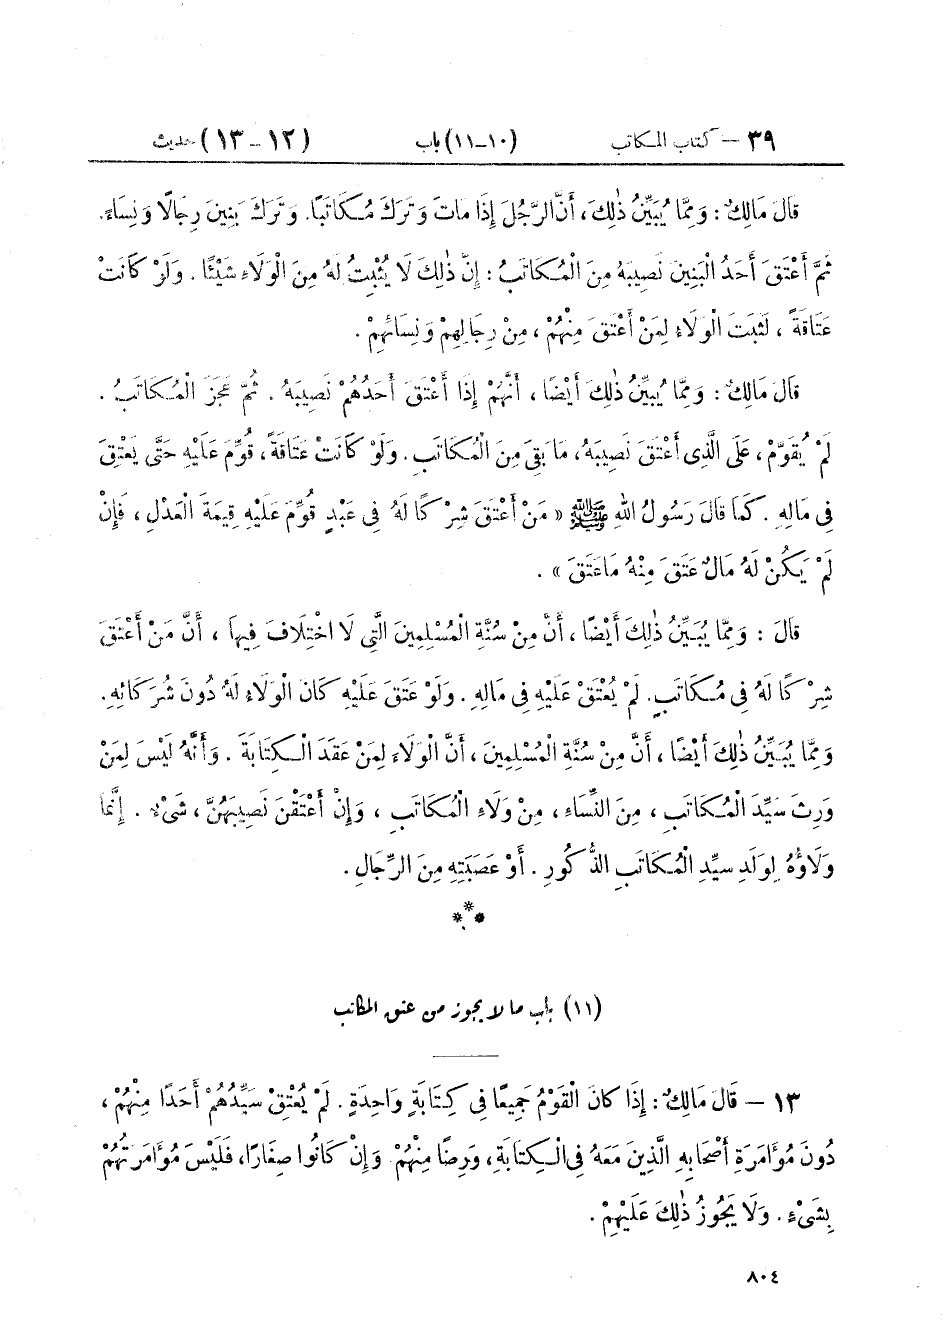 ٣٩ – كتاب المكاتب (١٠–١١) باب (١٢–١٣) حديث
قَالَ مَالِكٌ : وَمِمَّا يُبَيِّنُ ذٰلِكَ، أَنَّ الرَّجُلَ إِذَا مَاتَ وَتَرَكَ مُكَاتَبًا. وَتَرَكَ بَنِينَ رِجَالًا وَنِسَاءً.
ثُمَّ أَعْتَقَ أَحَدُ الْبَنِينَ نَصِيبَهُ مِنَ الْمُكَاتَبِ : إِنَّ ذٰلِكَ لَا يُثْبِتُ لَهُ مِنَ الْوَلَاءِ شَيْئًا . وَلَوْ كَانَتْ
عَتَاقَةً ، لَثَبَتَ الْوَلَاءُ لِمَنْ أَعْتَقَ مِنْهُمْ ، مِنْ رِجَالِهِمْ وَنِسَائِهِمْ .
قَالَ مَالِكٌ : وَمِمَّا يُبَيِّنُ ذٰلِكَ أَيْضًا ، أَنَّهُمْ إِذَا أَعْتَقَ أَحَدُهُمْ نَصِيبَهُ . ثُمَّ عَجَزَ الْمُكَاتَبُ .
لَمْ يُقَوَّمْ ، عَلَى الَّذِى أَعْتَقَ نَصِيبَهُ، مَا بَقِىَ مِنَ الْمُكَاتَبِ . وَلَوْ كَانَتْ عَتَاقَةً ، قُوِّمَ عَلَيْهِ حَتَّى يَعْتِقَ
فِى مَالِهِ . كَمَا قَالَ رَسُولُ اللهِ ﷺ « مَنْ أَعْتَقَ شِرْكًا لَهُ فِى عَبْدٍ قُوِّمَ عَلَيْهِ قِيمَةَ الْعَدْلِ ، فَإِنْ
لَمْ يَكُنْ لَهُ مَالٌ عَتَقَ مِنْهُ مَا عَتَقَ » .
قَالَ : وَمِمَّا يُبَيِّنُ ذٰلِكَ أَيْضًا ، أَنَّ مِنْ سُنَّةِ الْمُسْلِمِينَ الَّتِى لَا اخْتِلَافَ فِيهَا ، أَنَّ مَنْ أَعْتَقَ
شِرْكًا لَهُ فِى مُكَاتَبٍ. لَمْ يُعْتَقْ عَلَيْهِ فِى مَالِهِ . وَلَوْ عَتَقَ عَلَيْهِ كَانَ الْوَلَاءُ لَهُ دُونَ شُرَكَائِهِ.
وَمِمَّا يُبَيِّنُ ذٰلِكَ أَيْضًا ، أَنَّ مِنْ سُنَّةِ الْمُسْلِمِينَ ، أَنَّ الْوَلَاءَ لِمَنْ عَقَدَ الْكِتَابَةَ . وَأَنَّهُ لَيْسَ لِمَنْ
وَرِثَ سَيِّدَ الْمُكَاتَبِ ، مِنَ النِّسَاءِ ، مِنْ وَلَاءِ الْمُكَاتَبِ ، وَإِنْ أَعْتَقْنَ نَصِيبَهُنَّ ، شَىْءٌ . إِنَّمَا
وَلَاؤُهُ لِوَلَدِ سَيِّدِ الْمُكَاتَبِ الذُّكُورِ . أَوْ عَصَبَتِهِ مِنَ الرِّجَالِ .
***
(١١) باب ما لا يجوز من عتق المكاتب
١٣ – قَالَ مَالِكٌ : إِذَا كَانَ الْقَوْمُ جَمِيعًا فِى كِتَابَةٍ وَاحِدَةٍ . لَمْ يُعْتِقْ سَيِّدُهُمْ أَحَدًا مِنْهُمْ ،
دُونَ مُؤَامَرَةِ أَصْحَابِهِ الَّذِينَ مَعَهُ فِى الْكِتَابَةِ، وَرِضًا مِنْهُمْ وَإِنْ كَانُوا صِغَارًا، فَلَيْسَ مُؤَامَرَتُهُمْ
بِشَىْءٍ . وَلَا يَجُوزُ ذٰلِكَ عَلَيْهِمْ .
٨٠٤